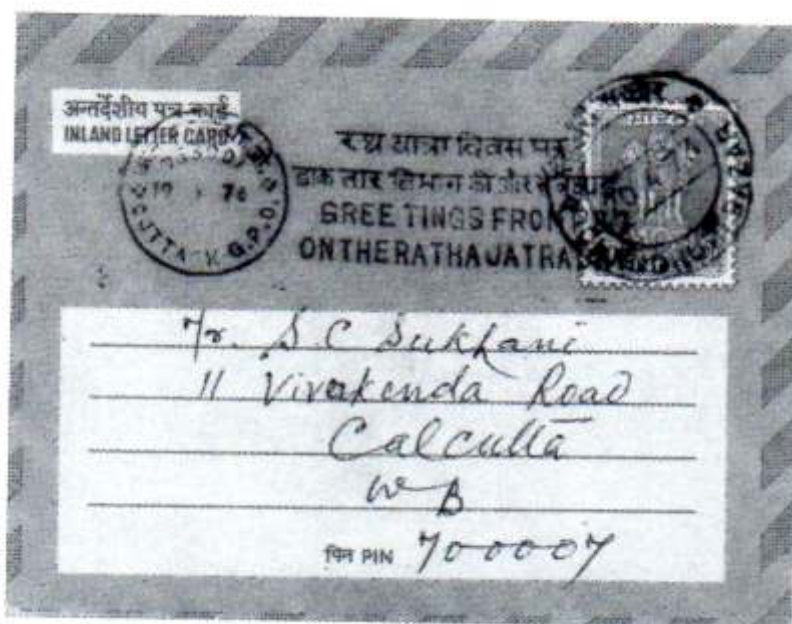 अन्तर्देशीय पत्र कार्ड
INLAND LETTER CARD
रथ यात्रा दिवस पर
डाक तार विभाग की ओर से
GREETINGS FROM
ON THE RATHA JATRA
CUTTACK G.P.O.
Mr. S. C Sukhani
11 Vivekenda Road
Calcutta
W B
पिन PIN 700007